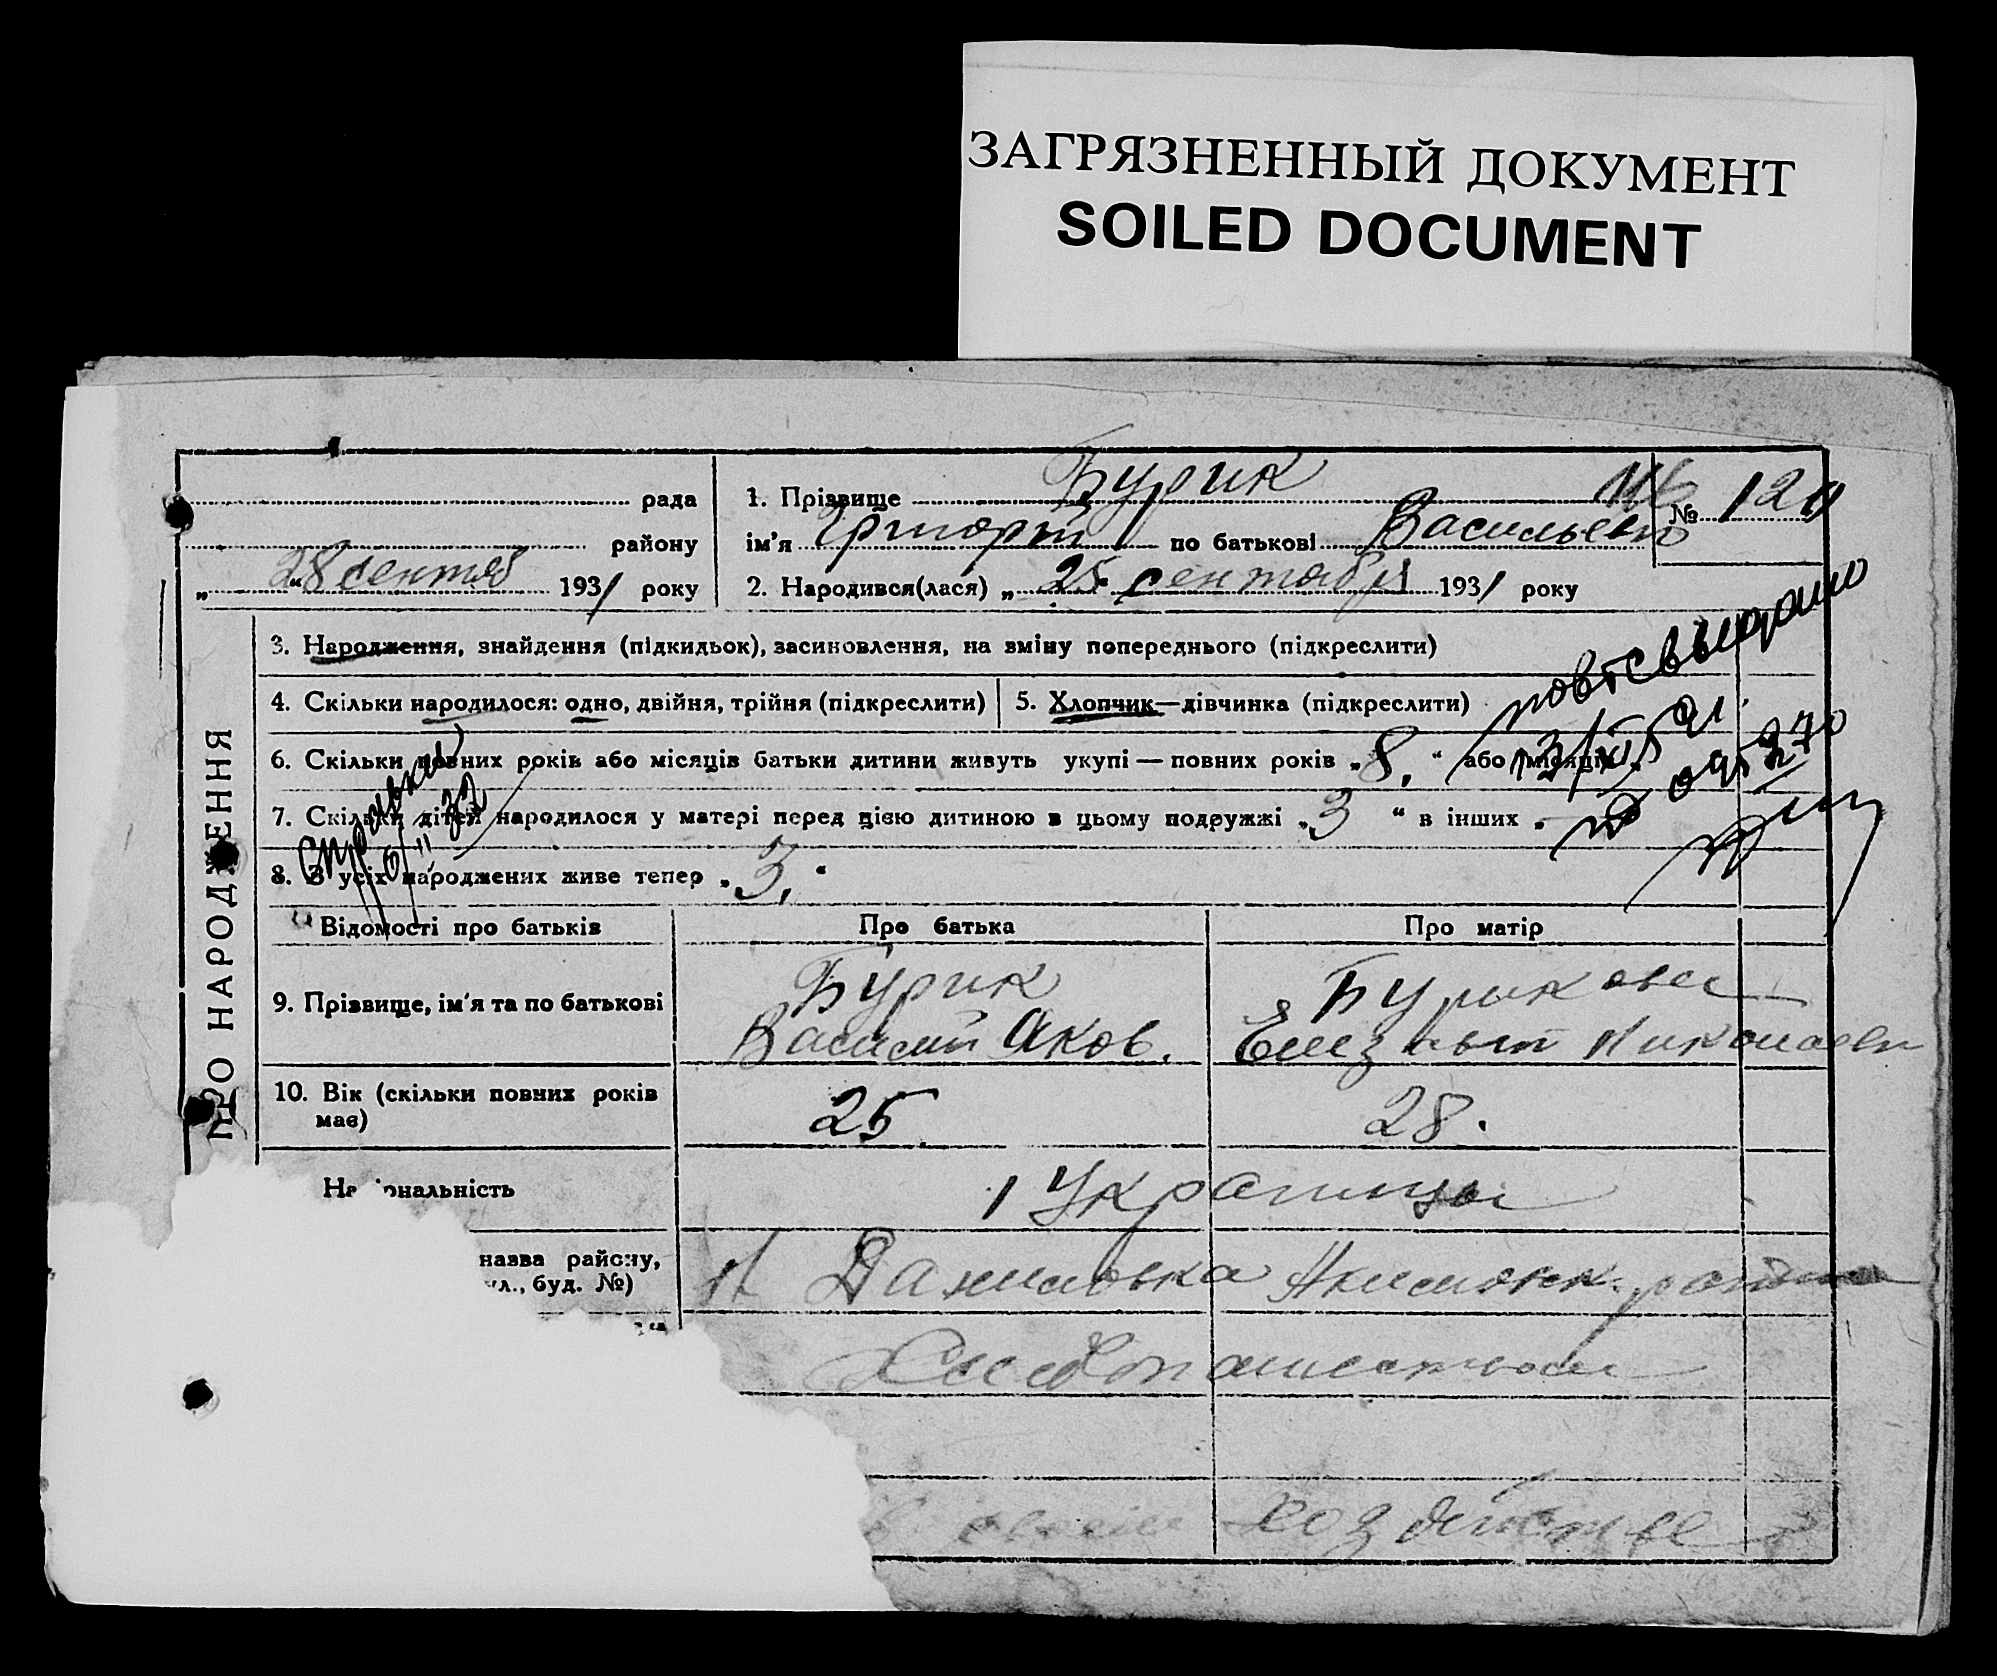 ЗАГРЯЗНЕННЫЙ ДОКУМЕНТ
SOILED DOCUMENT
рада
району
„28“ сентяб 1931 року
1. Прізвище Бурик
ім'я Григорт по батькові Васильевич
№ 120
2. Народився(лася) „25“ сентября 1931 року
ПРО НАРОДЖЕННЯ
3. Народження, знайдення (підкидьок), засиновлення, на зміну попереднього (підкреслити)
4. Скільки народилося: одно, двійня, трійня (підкреслити)
5. Хлопчик—дівчинка (підкреслити)
6. Скільки повних років або місяців батьки дитини живуть укупі — повних років „8.“ або місяців
7. Скільки дітей народилося у матері перед цією дитиною в цьому подружжі „3“ в інших „
8. З усіх народжених живе тепер „3.“
Відомості про батьків
Про батька
Про матір
9. Прізвище, ім'я та по батькові
Бурик
Василий Яков.
Бурикова
Елизавет Николаевн
10. Вік (скільки повних років має)
25.
28.
Національність
Украинцы
назва району,
ул., буд. №)
Даниловка Акимовск. района
Хлебопашество
В своем хозяйстве